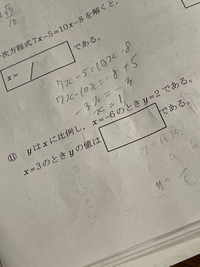 次方程式7x-5=10x-8を解くと、
x= / である。
7x-5=10x-8
7x-10x=-8+5
-3x=-3
x=1
⑪ yはxに比例し、x=-6のときy=2である。
x=3のときyの値は である。